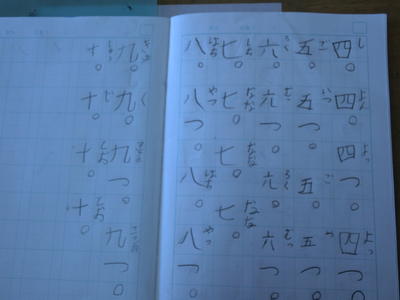 し よん よっ よっ
四。四。四つ。四つ。
ご いつ ご
五。五つ。五。五つ。
ろく むっ
六。六つ。六。六つ。
しち なな なな なな
七。七。七。七。
はち やつ はち やっ
八。八つ。八。八つ。
く
九。九。九つ。九つ。
じゅう じ とお とお
十。十。十。十。